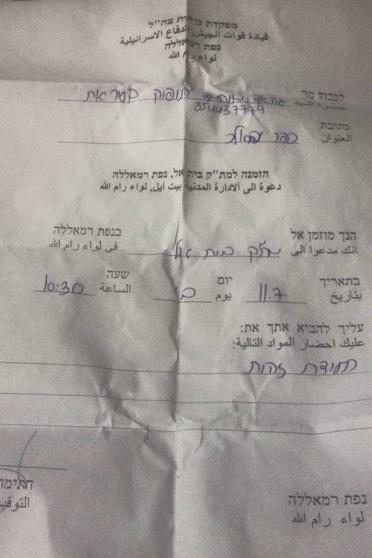 מפקדת כוחות צה"ל
قيادة قوات الجيش الدفاع الاسرائيلية
נפת רמאללה
لواء رام الله
לכבוד מר
כתובת
العنوان כפר
הזמנה למת"ק בית אל, נפת רמאללה
دعوة الى الادارة المدنية بيت ايل، لواء رام الله
הנך מוזמן אל בנפת רמאללה
انك مدعوا الى מת"ק בית אל في لواء رام الله
בתאריך יום שעה
بتاريخ 11.7 يوم ב الساعة 10:30
עליך להביא אתך את:
عليك احضار المواد التالية:
תעודת זהות
חתימה
التوقيع
נפת רמאללה
لواء رام الله